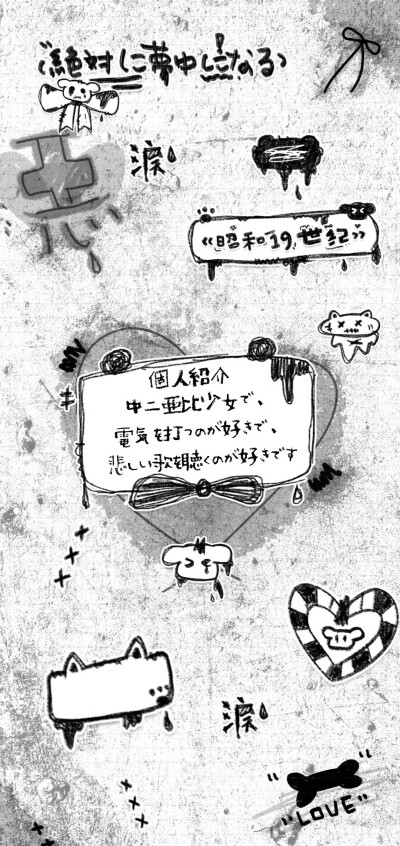 絶対に夢中になる
悪い
涙
《昭和19世紀》
個人紹介
中二亜比少女で、
電気を打つのが好きで、
悲しい歌を聴くのが好きです
涙
"LOVE"